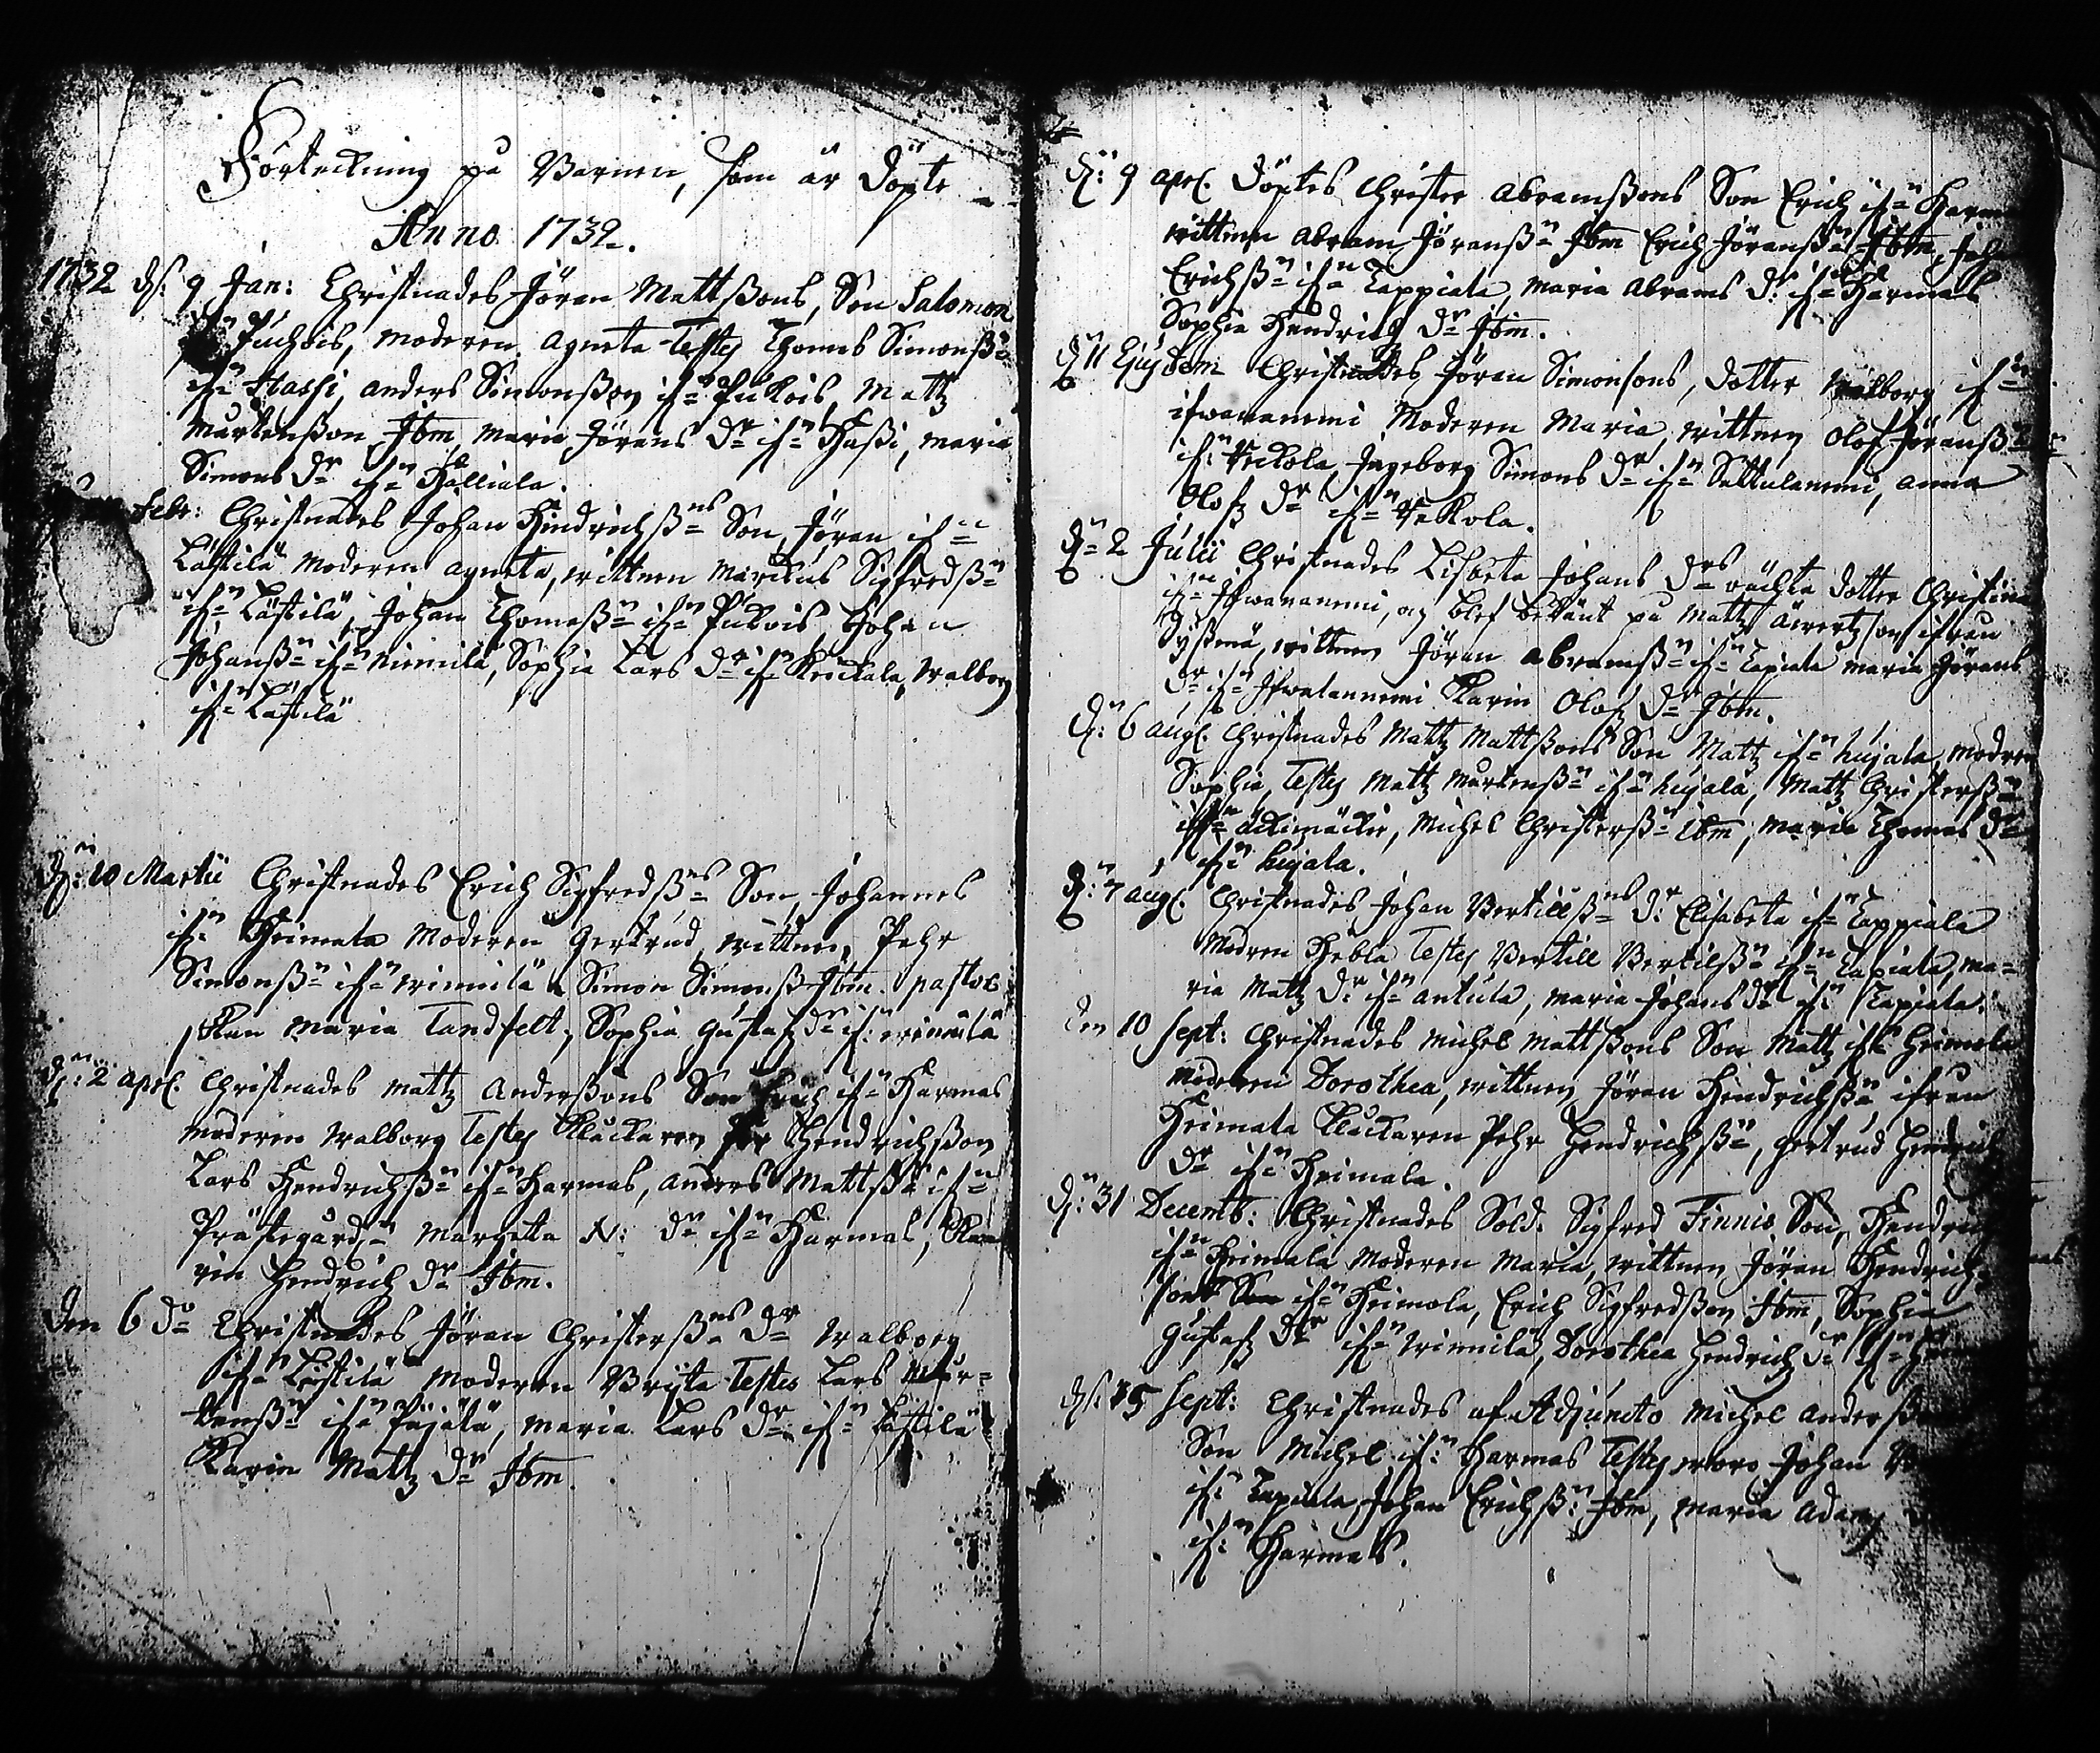 Förteckning på Barnen, som är döpte
Anno 1732.
1732 d: 9 Jan: Christnades Jöran Mattßons, Son Salomon
Puckois, moderen Agneta Testes Thomas Simonß:n
if:n Hassi, Anders Simonßon if:n Pukois, Matz
Mårtenßon Ibm, Maria Jörans D:r if:n Haßi, Maria
Simons D:r if:n Källiala.
Febr: Christnades Johan Hindrichß:ns Son, Jöran if:n
Lästilä Moderen Agneta, wittnen Marckus Sigfredß:n
if:n Lästilä, Johan Thomaß:n if:n Pukois Johan
Johanß:n if:n Nimilä, Sophia Lars D:r if:n Krickala, Walborg
if:n Lästilä
D:n 10 Martii Christnades Erich Sigfredß:ns Son, Johannes
if:n Heimala Moderen Gertrud, wittnen, Pehr
Simonß:n if:n Winnilä Simon Simonß Ibm. pastor-
skan Maria Tandfelt, Sophia Gustafz d:r if:n Winnilä
D:n 2 April. Christnades Matz Anderßons Son Erich if:n Harmas
moderen Walborg Testes Klåckaren Per Hendrichßon
Lars Hendrichß:n if:n Harmas, Anders Mattß:n if:n
Prästegård:n Margeta N: D:r if:n Harmas, Ka-
rin Hendrich D:r Ibm.
Den 6 D:o Christnades Jöran Christerß:ns D:r Walborg
if:n Lästilä Moderen Brijta Testes Lars Mår-
tenß:n if:n Päjälä, Maria Lars D:r if:n Lästilä
Karin Matz D:r Ibm.
D:n 9 April. Döptes Christer Abramßons Son Erich if:n Harm
wittnen Abram Jöranß:n Ibm Erich Jöranß:n Ibm, Joh
Erichß:n if:n Tappiala, Maria Abrams D: if:n Harmas
Sophia Hendrich D:r Ibm.
D:n 11 Ejusdem Christnades Jöran Simonsons, dotter Walborg if:n
ifwananemi Moderen Maria, wittnen Olof Jöranß:n
if:n Veckola, Ingeborg Simons D:r if:n Sattulanemi, Anna
Olofz D:r if:n Vekola.
D:n 2 Julii Christnades Lisbeta Johans D:rs oächta dotter Christina
if:n Ifwananemi, og blef bekänt på Matz Äwertzson ifrån
Syßmä, wittnen Jöran Abramß:n if:n Tapiala Maria Jörans
D:r if:n Ifwalannemi Karin Olofz D:r Ibm.
D:n 6 Aug. Christnades Matz Mattßons Son Matz if:n hujala, modren
Sophia, Testes Matz Mårtenß:n if:n hujala, Matz Christerß:n
if:n äckimäckie, Michel Christerß:n Ibm, Maria Thomas D:r
if:n hujala.
D:n 7 Aug. Christnades, Johan Bertillß:ns D:r Elisabeta if:n Tappiala
Modren Hebla Testes Bertill Bertilß:n if:n Tapiala, Ma-
ria Matz D:r if:n Antula, Maria Johans d:r if:n Tapiala.
Den 10 Sept: Christnades Michel Mattßons Son Matz if:n Heimala
Moderen Dorothea, wittnen, Jöran Hendrichß:n ifrån
Heimala Klåckaren Pehr Hendrichß:n, Gertrud Hendrich
D:r if:n Heimala.
D:n 31 Decemb: Christnades Sold: Sigfred Finnis Son, Hendri
if:n Heimala Moderen Maria, wittnen Jöran Hendrich-
sons Son if:n Heimola, Erich Sigfredßon Ibm, Sophia
Gustafz D:r if:n Winnilä, Dorothea Hendrich d:r if:n Hei
D: 15 Sept: Christnades af Adjuncto Michel Anderß
Son Michel if:n Harmas Testes woro Johan
if:n Tapiala, Johan Erichß:n Ibm, Maria Adamz
if:n Harmas.